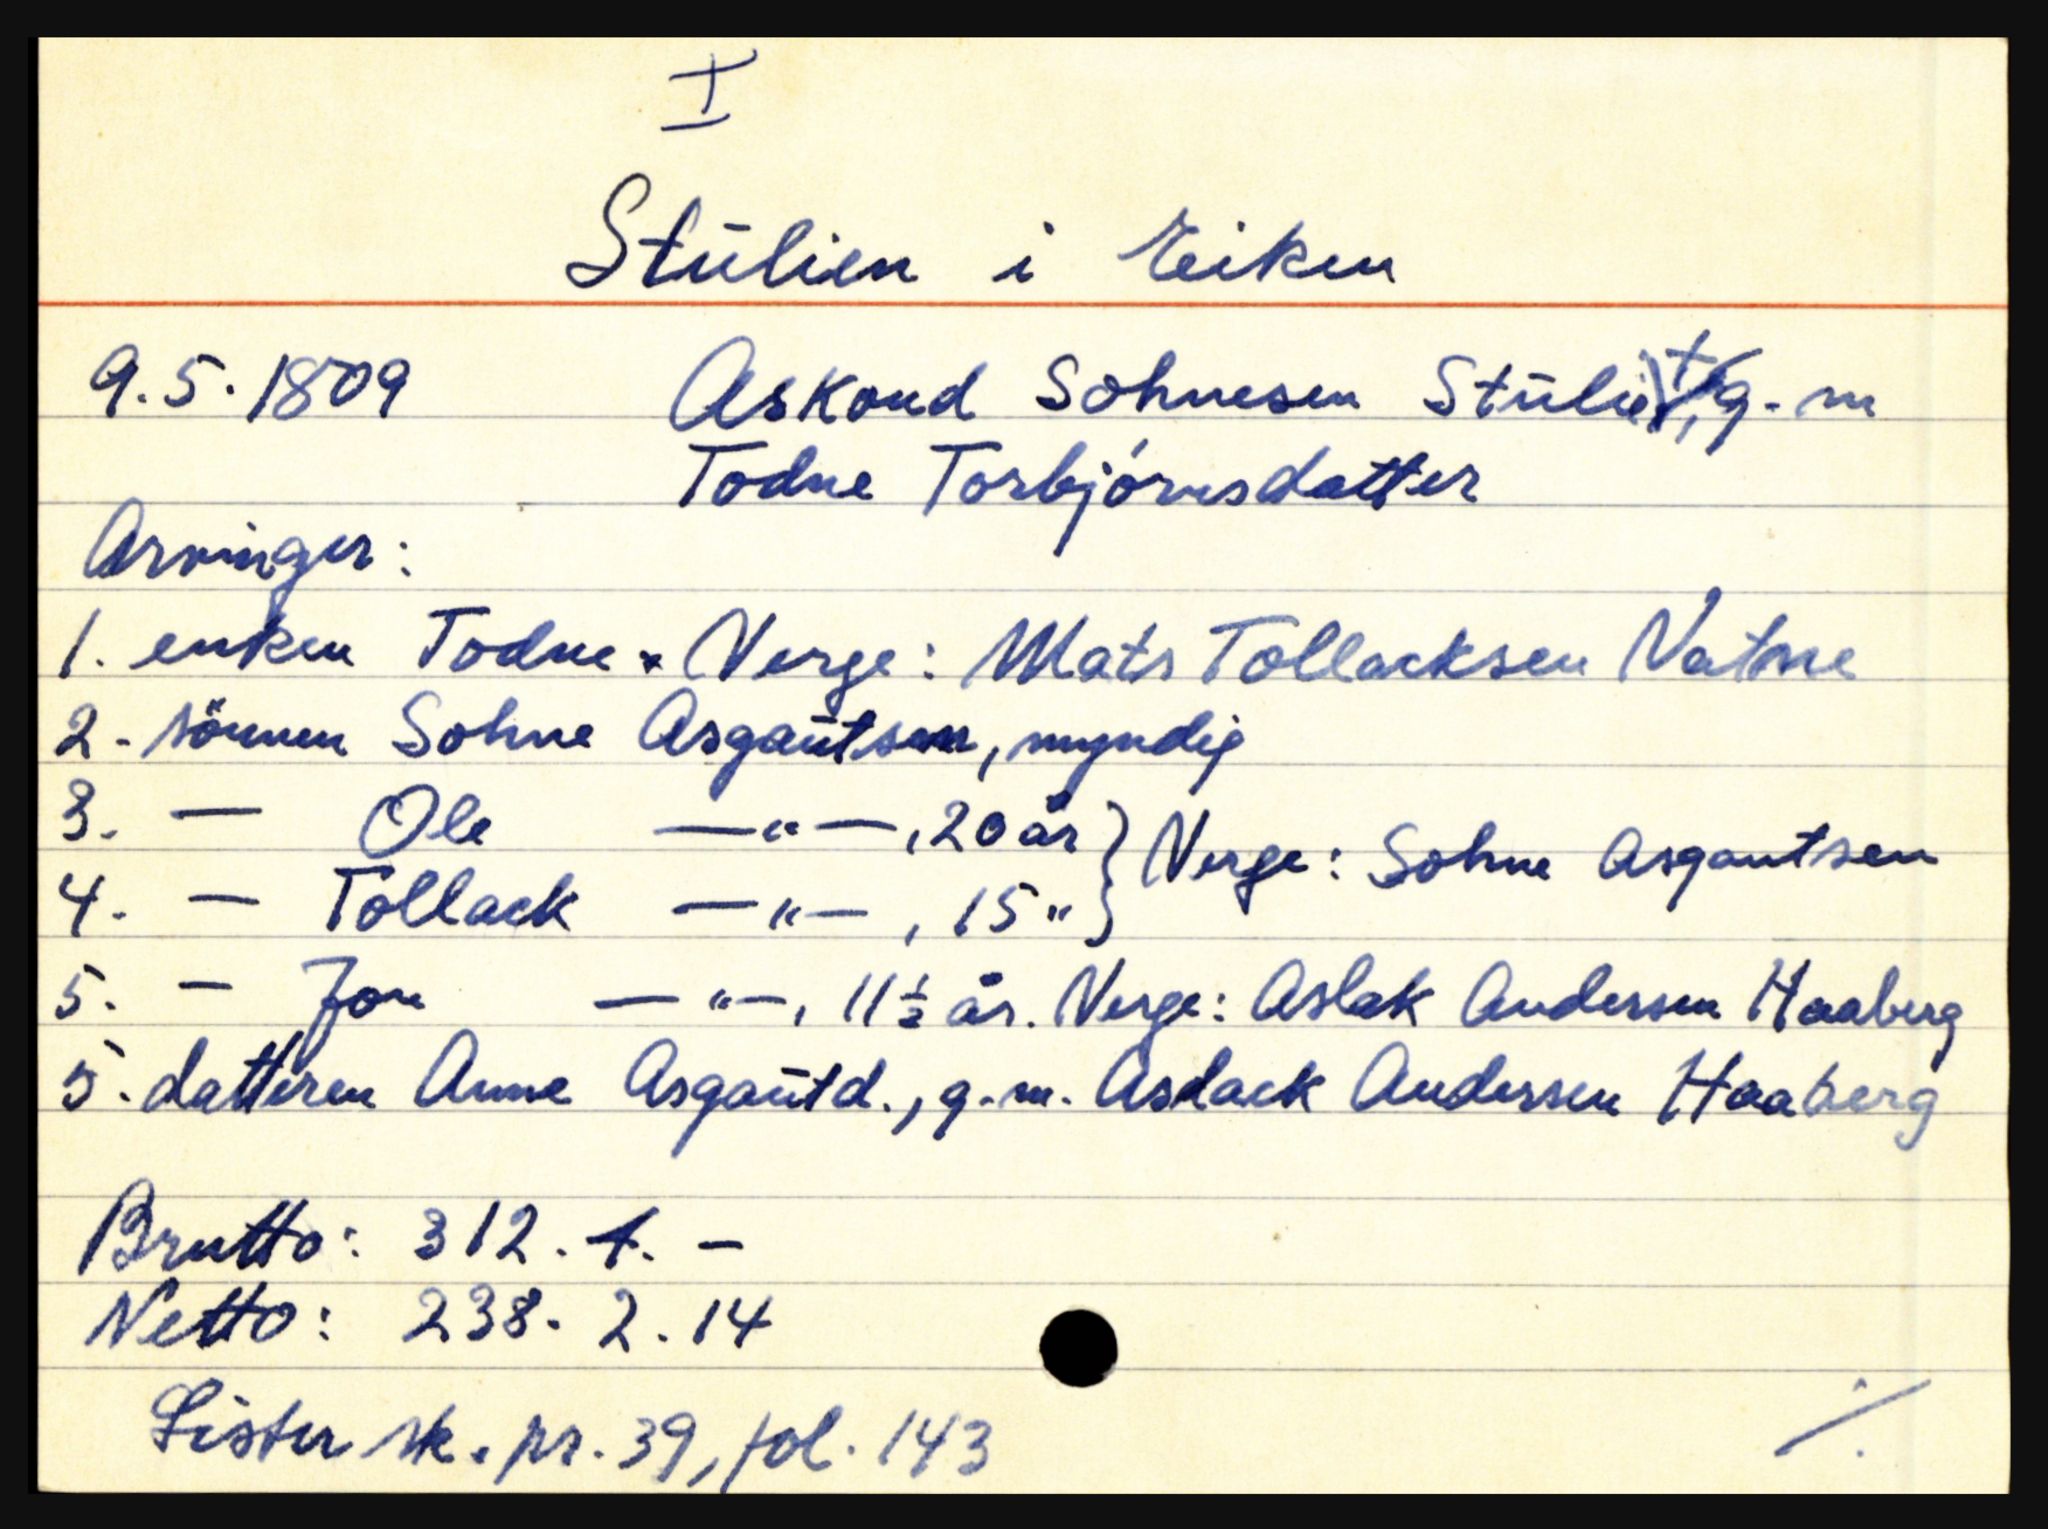 I
Stūlien i Eiken
9.5.1809 Askoud Sohnesen Stūlie †, g. m
Todne Torbjörnsdatter
Arvinger:
1. enken Todne. Verge: Mats Tollacksen Vatne
2. sönnen Sohne Asgaūtsen, myndig
3. — Ole —"—, 20 år } Verge: Sohne Asgautsen
4. — Tollack —"—, 15 " }
5. — Jon —"—, 11½ år. Verge: Aslak Anderssen Haaberg
5. datteren Anne Asgaūtd., g. m. Aslack Anderssen Haaberg
Brutto: 312. 1. —
Netto: 238. 2. 14
Lister sk. pr. 39, fol. 143